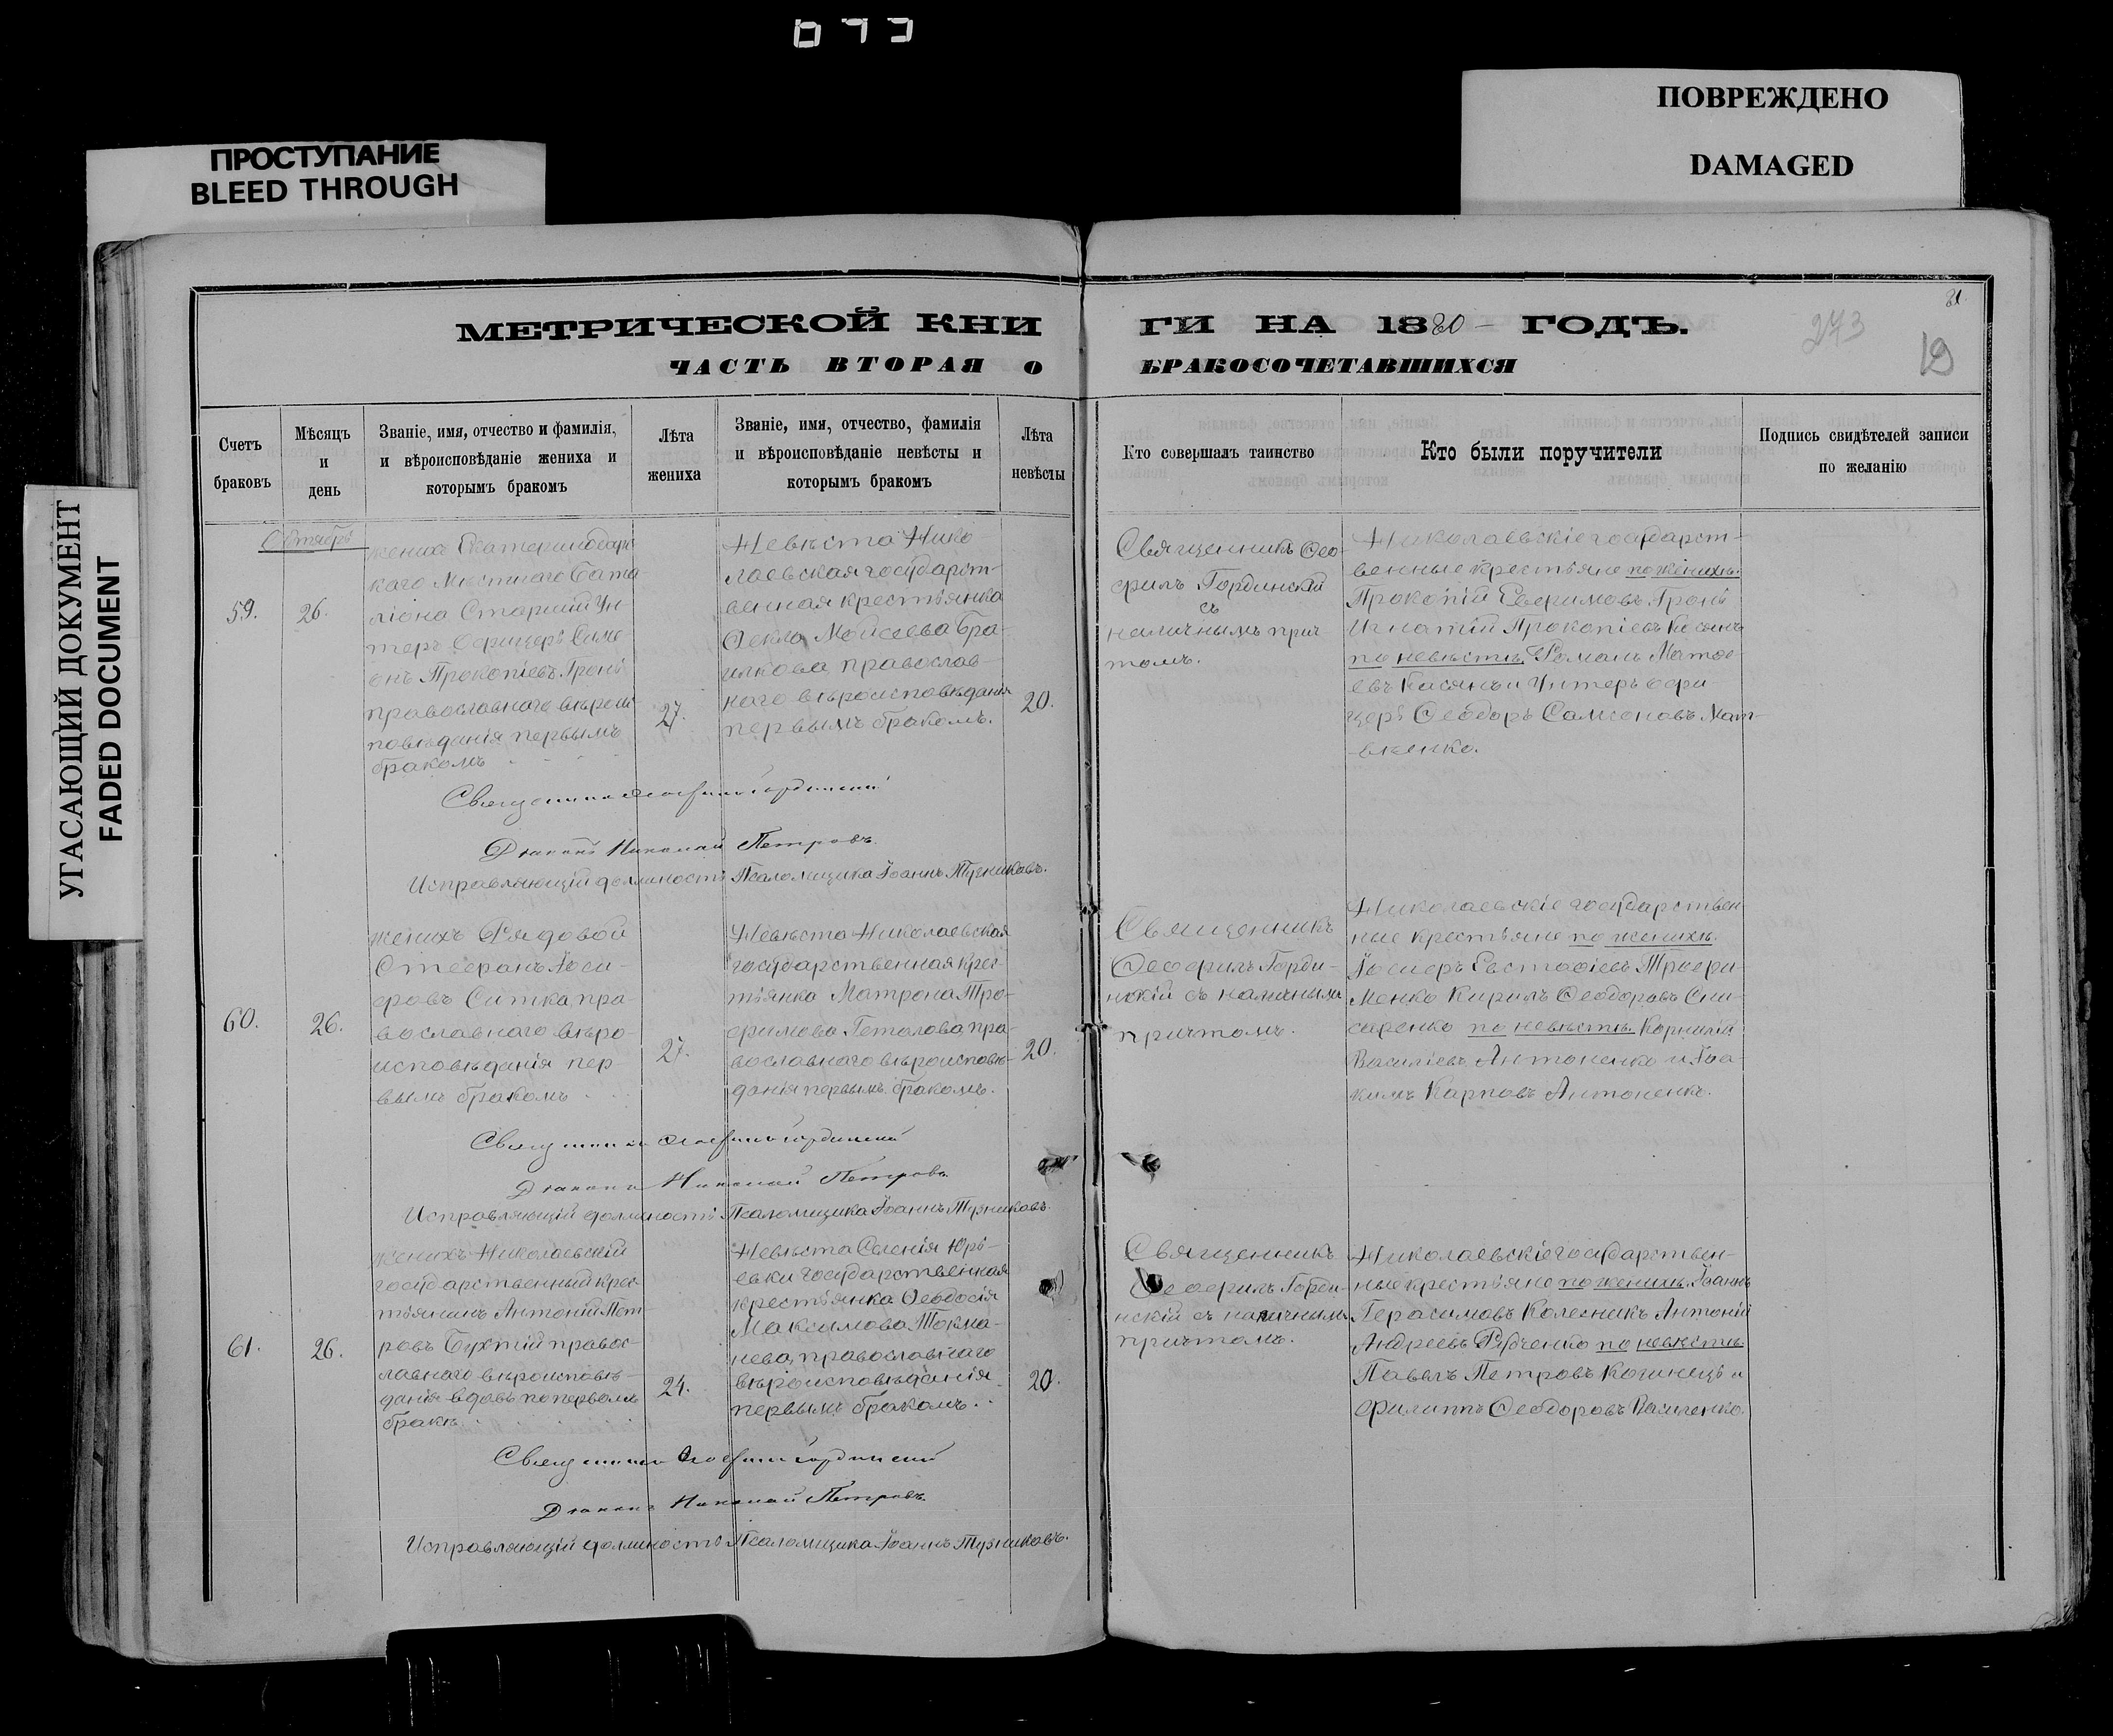 ПРОСТУПАНИЕ
BLEED THROUGH
ПОВРЕЖДЕНО
DAMAGED
УГАСАЮЩИЙ ДОКУМЕНТ
FADED DOCUMENT
МЕТРИЧЕСКОЙ КНИ
ГИ НА 1880 — ГОДЪ.
ЧАСТЬ ВТОРАЯ О
БРАКОСОЧЕТАВШИХСЯ
273
19
Счетъ
браковъ
Мѣсяцъ
и
день
Званіе, имя, отчество и фамилія,
и вѣроисповѣданіе жениха и
которымъ бракомъ
Лѣта
жениха
Званіе, имя, отчество, фамилія
и вѣроисповѣданіе невѣсты и
которымъ бракомъ
Лѣта
невѣсты
Кто совершалъ таинство
Кто были поручители
Подпись свидѣтелей записи
по желанію
Октябрь
59.
26.
женихъ
каго Мѣстнаго Бата-
ліона Старшій Ун
теръ Офицеръ Симе
онъ Прокопіевъ
православнаго вѣроис
повѣданія первымъ
бракомъ
27.
Невѣста Нико
лаевская государст-
венная крестьянка
Ѳекла Мойсеева Бра-
православ-
наго вѣроисповѣданія
первымъ бракомъ.
20.
Священникъ Ѳео-
филъ Гординскій
съ
наличнымъ прич
томъ.
Николаевскіе государст-
венные крестьяне по женихѣ.
Прокопій Евфимовъ
Игнатій Прокопіевъ
по невѣстѣ. Романъ Матѳе-
евъ Касянъ и Унтеръ офи-
церъ Ѳеодоръ Самсоновъ Мат-
вѣенко.
Священникъ Ѳеофилъ Гординскій
Діаконъ Николай Петровъ.
Исправляющій должность Псаломщика Іоаннъ
60.
26.
женихъ Рядовой
Стефанъ Іоси-
фовъ Ситка пра-
вославнаго вѣро-
исповѣданія пер-
вымъ бракомъ
27.
Невѣста Николаевская
государственная крес-
тьянка Матрона Тро-
фимова пра-
вославнаго вѣроисповѣ-
данія первымъ бракомъ.
20.
Священникъ
Ѳеофилъ Горди-
нскій съ наличнымъ
причтомъ.
Николаевскіе государствен-
ные крестьяне по женихѣ.
Іосифъ Евстафіевъ Трофи-
менко Кирилъ Ѳеодоровъ Сли-
саренко по невѣстѣ. Корнилій
Василіевъ Антоненко и Іоа-
кимъ Карповъ Антоненко.
Священникъ Ѳеофилъ Гординскій
Діаконъ Николай Петровъ
Исправляющій должность Псаломщика Іоаннъ
61.
26.
женихъ Николаевскій
государственный крес-
тьянинъ Антоній Пет-
ровъ Бухтій правос-
лавнаго вѣроисповѣ-
данія вдовъ по первомъ
бракѣ.
24.
Невѣста Селенія Юрь-
евки государственная
крестьянка Ѳеодосія
Максимова Токма-
нева, православнаго
вѣроисповѣданія
первымъ бракомъ.
20.
Священникъ
Ѳеофилъ Горди-
нскій съ наличнымъ
причтомъ.
Николаевскіе государствен-
ные крестьяне по женихѣ. Іоаннъ
Герасимовъ Колесникъ Антоній
Андреевъ Рубченко по невѣстѣ
Павелъ Петровъ и
Филиппъ Ѳеодоровъ
Священникъ Ѳеофилъ Гординскій
Діаконъ Николай Петровъ.
Исправляющій должность Псаломщика Іоаннъ